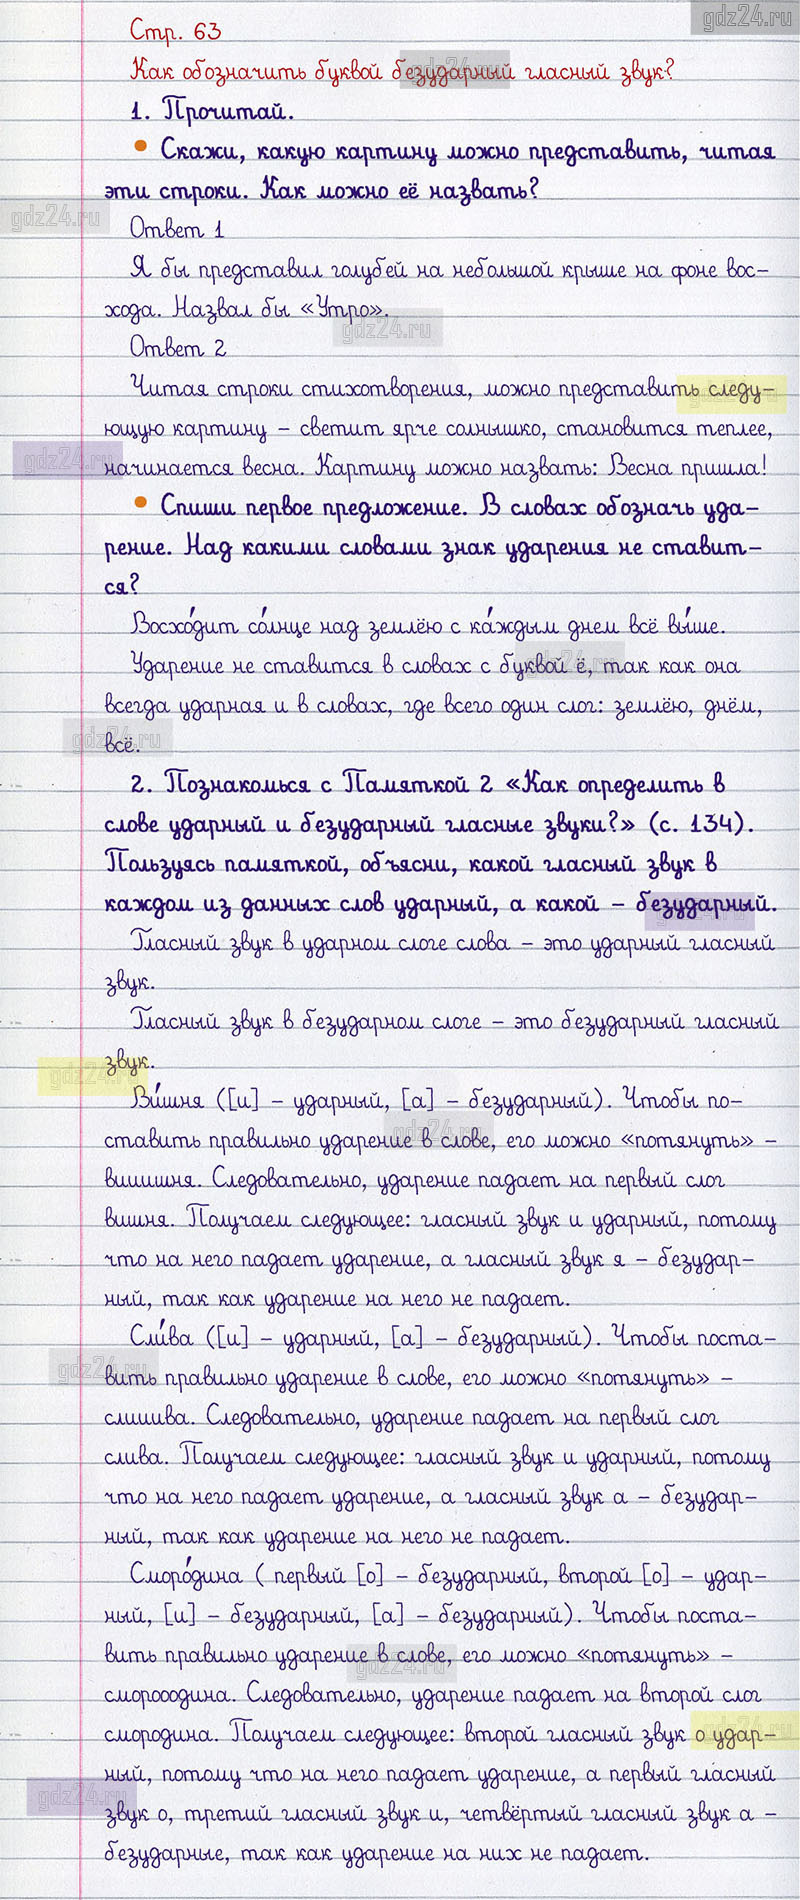 gdz24.ru
Стр. 63
Как обозначить буквой безударный гласный звук?
1. Прочитай.
• Скажи, какую картину можно представить, читая
эти строки. Как можно её назвать?
gdz24.ru
Ответ 1
Я бы представил голубей на небольшой крыше на фоне вос-
хода. Назвал бы «Утро».
gdz24.ru
Ответ 2
Читая строки стихотворения, можно представить следу-
ющую картину – светит ярче солнышко, становится теплее,
gdz24.ru
начинается весна. Картину можно назвать: Весна пришла!
• Спиши первое предложение. В словах обозначь уда-
рение. Над какими словами знак ударения не ставит-
ся?
Восхо́дит со́лнце над землёю с ка́ждым днем всё вы́ше.
Ударение не ставится в словах с буквой ё, так как она
всегда ударная и в словах, где всего один слог: землёю, днём,
gdz24.ru
всё.
2. Познакомься с Памяткой 2 «Как определить в
слове ударный и безударный гласные звуки?» (с. 134).
Пользуясь памяткой, объясни, какой гласный звук в
каждом из данных слов ударный, а какой – безударный.
Гласный звук в ударном слоге слова – это ударный гласный
звук.
Гласный звук в безударном слоге – это безударный гласный
звук.
gdz24.ru
Ви́шня ([и] – ударный, [а] – безударный). Чтобы по-
ставить правильно ударение в слове, его можно «потянуть» –
вииишня. Следовательно, ударение падает на первый слог
вишня. Получаем следующее: гласный звук и ударный, потому
что на него падает ударение, а гласный звук я – безудар-
ный, так как ударение на него не падает.
Сли́ва ([и] – ударный, [а] – безударный). Чтобы поста-
gdz24.ru
вить правильно ударение в слове, его можно «потянуть» –
слииива. Следовательно, ударение падает на первый слог
слива. Получаем следующее: гласный звук и ударный, потому
что на него падает ударение, а гласный звук а – безудар-
ный, так как ударение на него не падает.
Сморо́дина ( первый [о] – безударный, второй [о] – удар-
ный, [и] – безударный, [а] – безударный). Чтобы поста-
вить правильно ударение в слове, его можно «потянуть» –
gdz24.ru
смороoодина. Следовательно, ударение падает на второй слог
смородина. Получаем следующее: второй гласный звук о удар-
ный, потому что на него падает ударение, а первый гласный
gdz24.ru
звук о, третий гласный звук и, четвёртый гласный звук а –
безударные, так как ударение на них не падает.